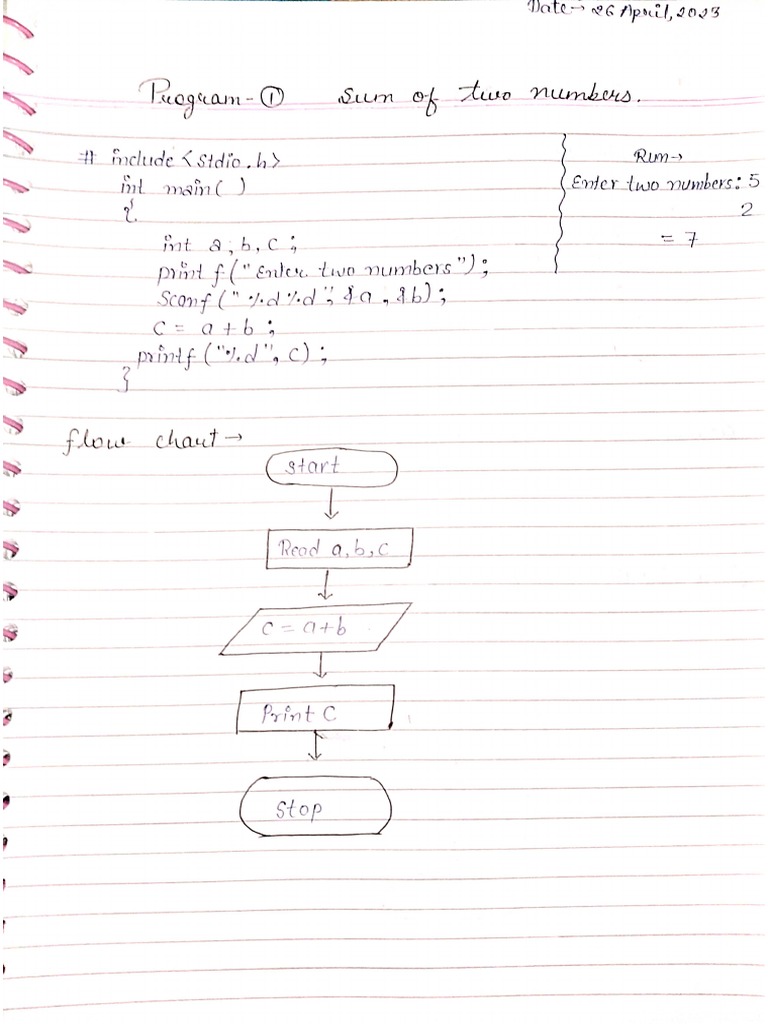 Date → 26 April, 2023
Program - ① Sum of two numbers.
# include <stdio.h>
int main( )
{
int a, b, c ;
print f ("Enter two numbers");
Scanf ("%d %d", &a, &b);
c = a + b ;
printf ("%d", c) ;
}
Run →
Enter two numbers: 5
2
= 7
flow chart →
start
Read a, b, c
c = a+b
Print C
Stop